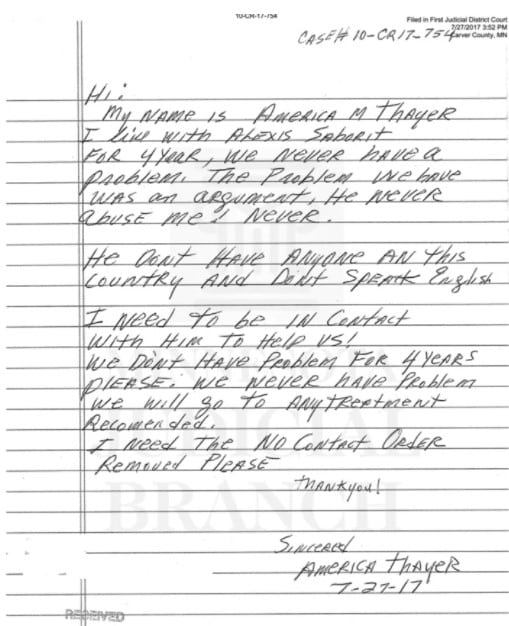 10-CR-17-754
Filed in First Judicial District Court
7/27/2017 3:52 PM
Carver County, MN
CASE# 10-CR17-754
Hi:
My NAME is AMERICA M Thayer
I live with Alexis Saborit
FOR 4 YEAR, we NEVER have a
problem. The Problem we have
was an argument, He NEVER
abuse me ! Never.
He Dont HAVE ANyone AN this
country AND DON'T SPEAK English
I NEED TO be IN Contact
With Him To Help US!
We DON'T HAVE Problem FOR 4 YEARS
PLEASE. We NEVER have Problem
We will go to ANy TREATMENT
Recomended.
I NEED The NO Contact ORDER
Removed PLEASE
THANKyou!
JUDICIAL
BRANCH
AMERICA ThayER
7-27-17
RECEIVED